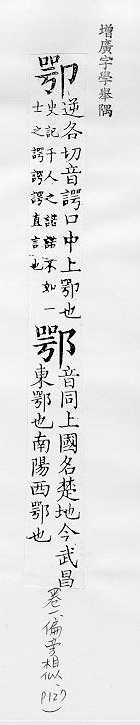 增廣字學舉隅
卾逆各切音諤口中上卾也
史記千人之諾諾不如一
士之諤諤諤直言也
鄂音同上國名楚地今武昌
東鄂也南陽西鄂也
卷一、偏旁相似、P127)